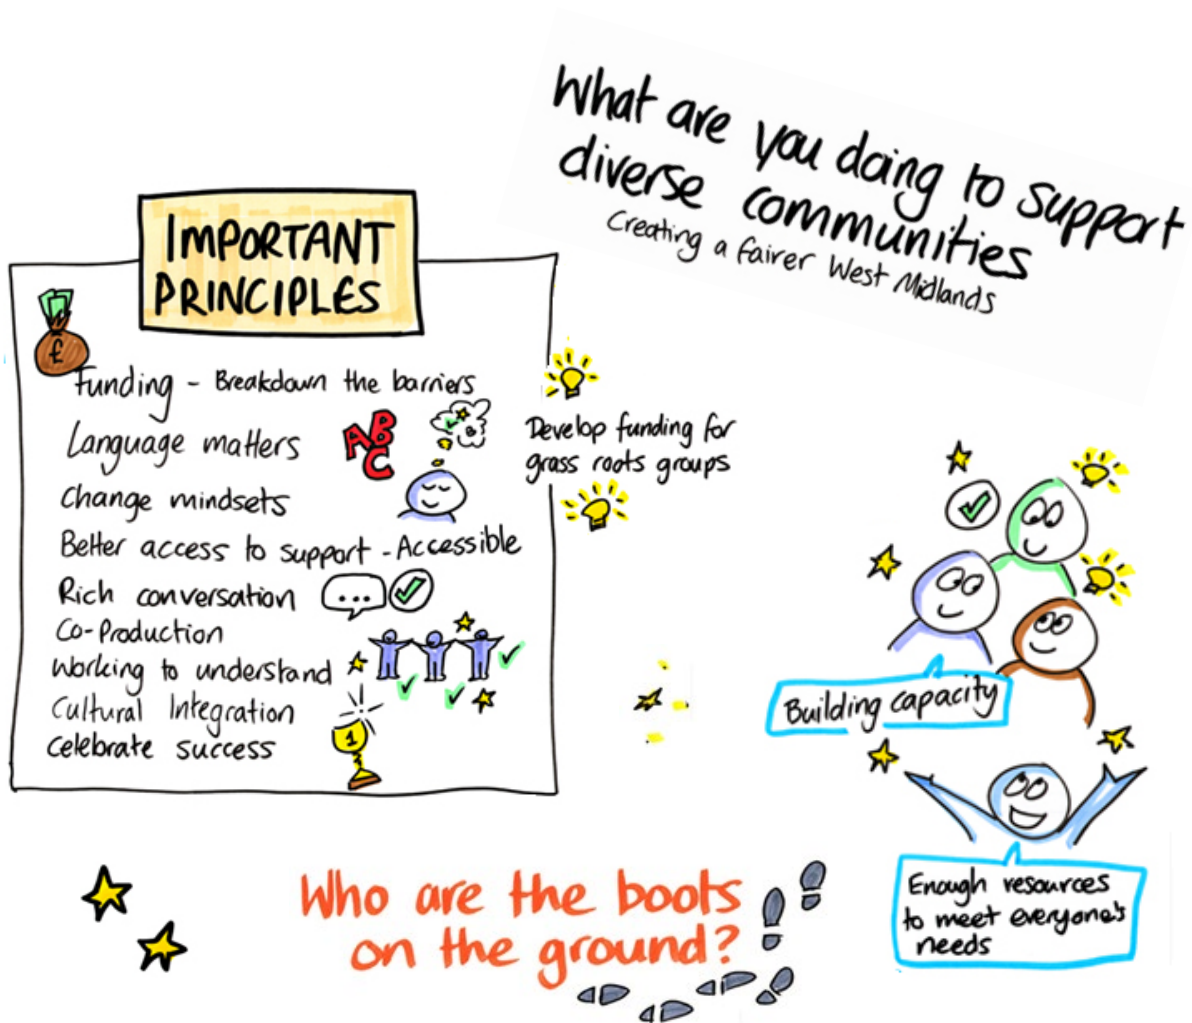 What are you doing to support
diverse communities
Creating a fairer West Midlands
IMPORTANT
PRINCIPLES
£
Funding - Breakdown the barriers
Language matters
ABC
Change mindsets
Better access to support - Accessible
Rich conversation
...
Co-Production
Working to understand
Cultural Integration
Celebrate success
1
Develop funding for
grass roots groups
Building capacity
Enough resources
to meet everyone's
needs
Who are the boots
on the ground?